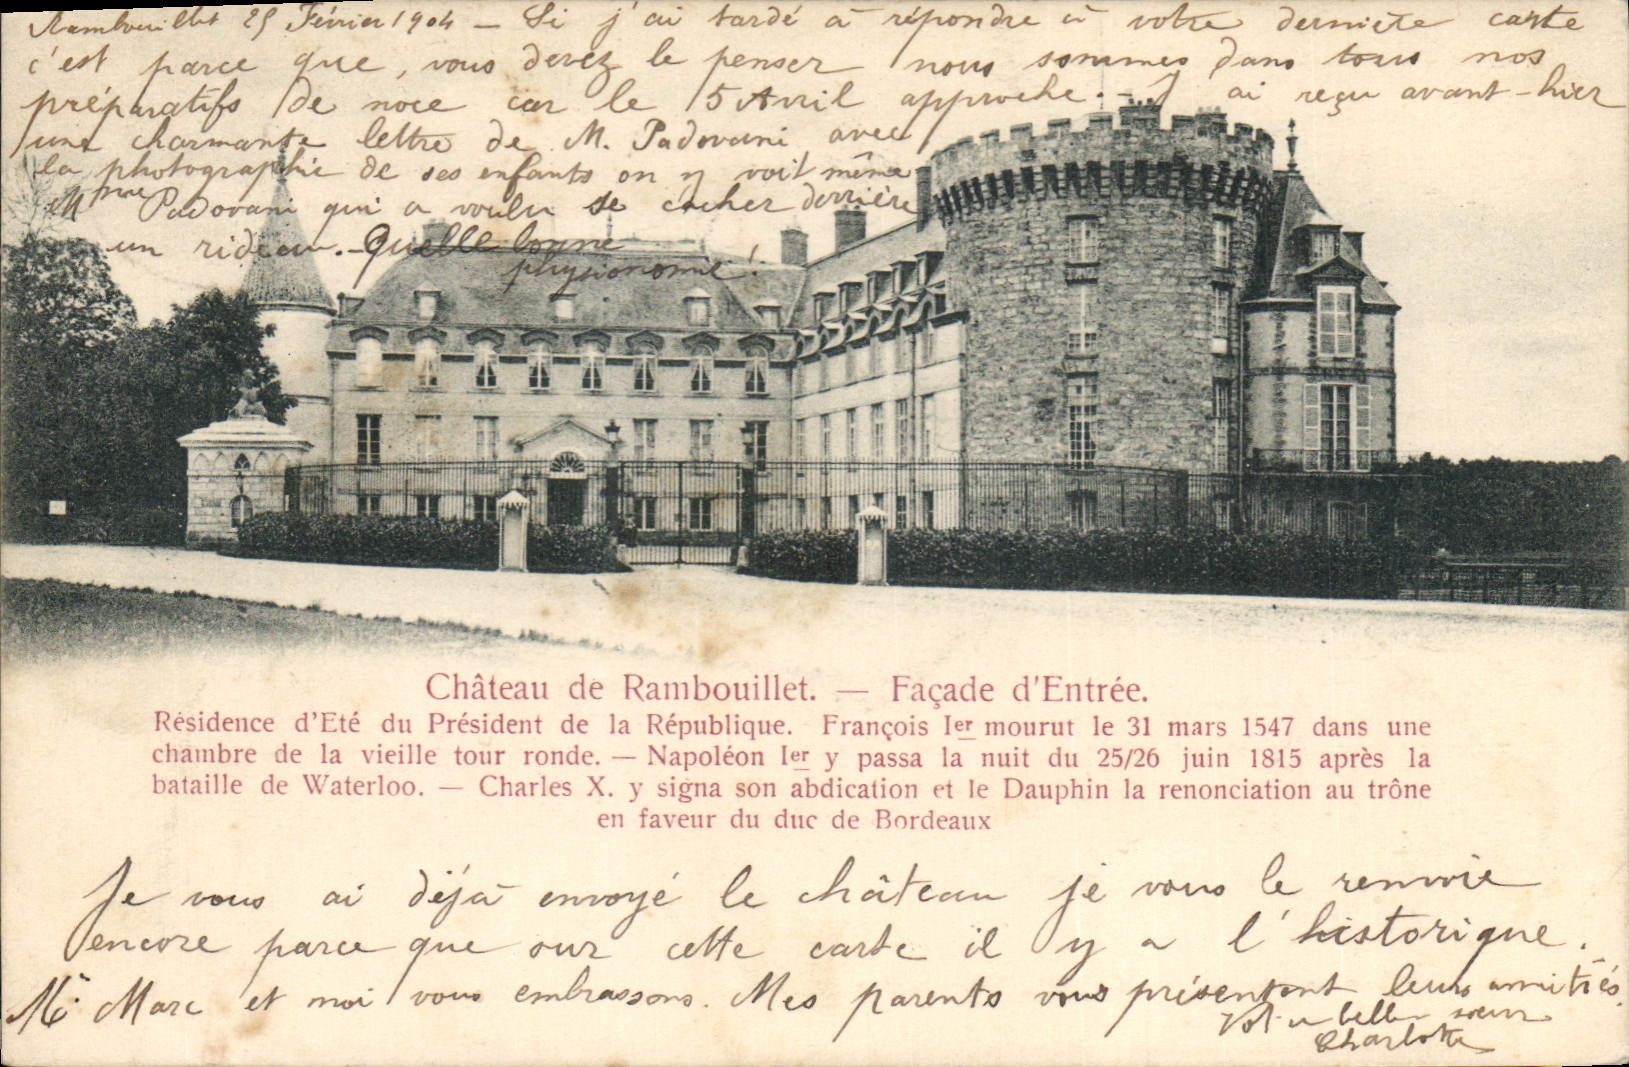 Rambouillet 25 Février 1904 — Si j'ai tardé à répondre à votre dernière carte
c'est parce que, vous devez le penser nous sommes dans tous nos
préparatifs de noce car le 5 Avril approche. – J'ai reçu avant-hier
une charmante lettre de M. Padovani avec
la photographie de ses enfants on y voit même
Mme Padovani qui a voulu se cacher derrière
un rideau. – Quelle bonne
physionomie !
Château de Rambouillet. — Façade d'Entrée.
Résidence d'Eté du Président de la République. François Ier mourut le 31 mars 1547 dans une
chambre de la vieille tour ronde. — Napoléon Ier y passa la nuit du 25/26 juin 1815 après la
bataille de Waterloo. — Charles X. y signa son abdication et le Dauphin la renonciation au trône
en faveur du duc de Bordeaux
Je vous ai déjà envoyé le château je vous le renvoie
encore parce que sur cette carte il y a l'historique.
Marc et moi vous embrassons. Mes parents vous présentent leurs amitiés.
Votre belle sœur
Charlotte